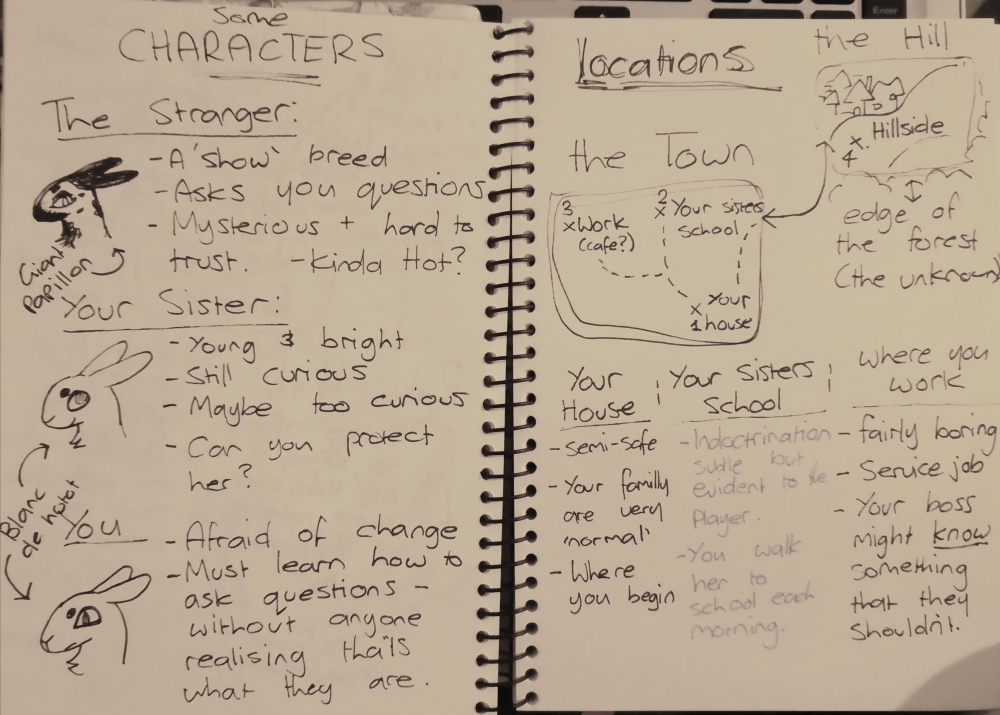 Some
CHARACTERS
The Stranger:
- A 'show' breed
- Asks you questions
- Mysterious + hard to
trust. - Kinda Hot?
Giant
Papillon
Your Sister:
- Young & bright
- Still curious
- Maybe too curious
- Can you protect
her?
Blanc
de hotot
You
- Afraid of change
- Must learn how to
ask questions -
without anyone
realising that's
what they are.
locations
the Hill
Hillside
x
4
edge of
the forest
(the unknown)
the Town
3
x Work
(cafe?)
2
x Your sisters
school
x Your
1 house
Your
House
- semi-safe
- Your familly
are very
'normal'
- Where
you begin
Your Sisters
School
- Indoctrination
subtle but
evident to the
player.
- You walk
her to
school each
morning.
where you
work
- fairly boring
- Service job
- Your boss
might know
something
that they
shouldn't.
Enter